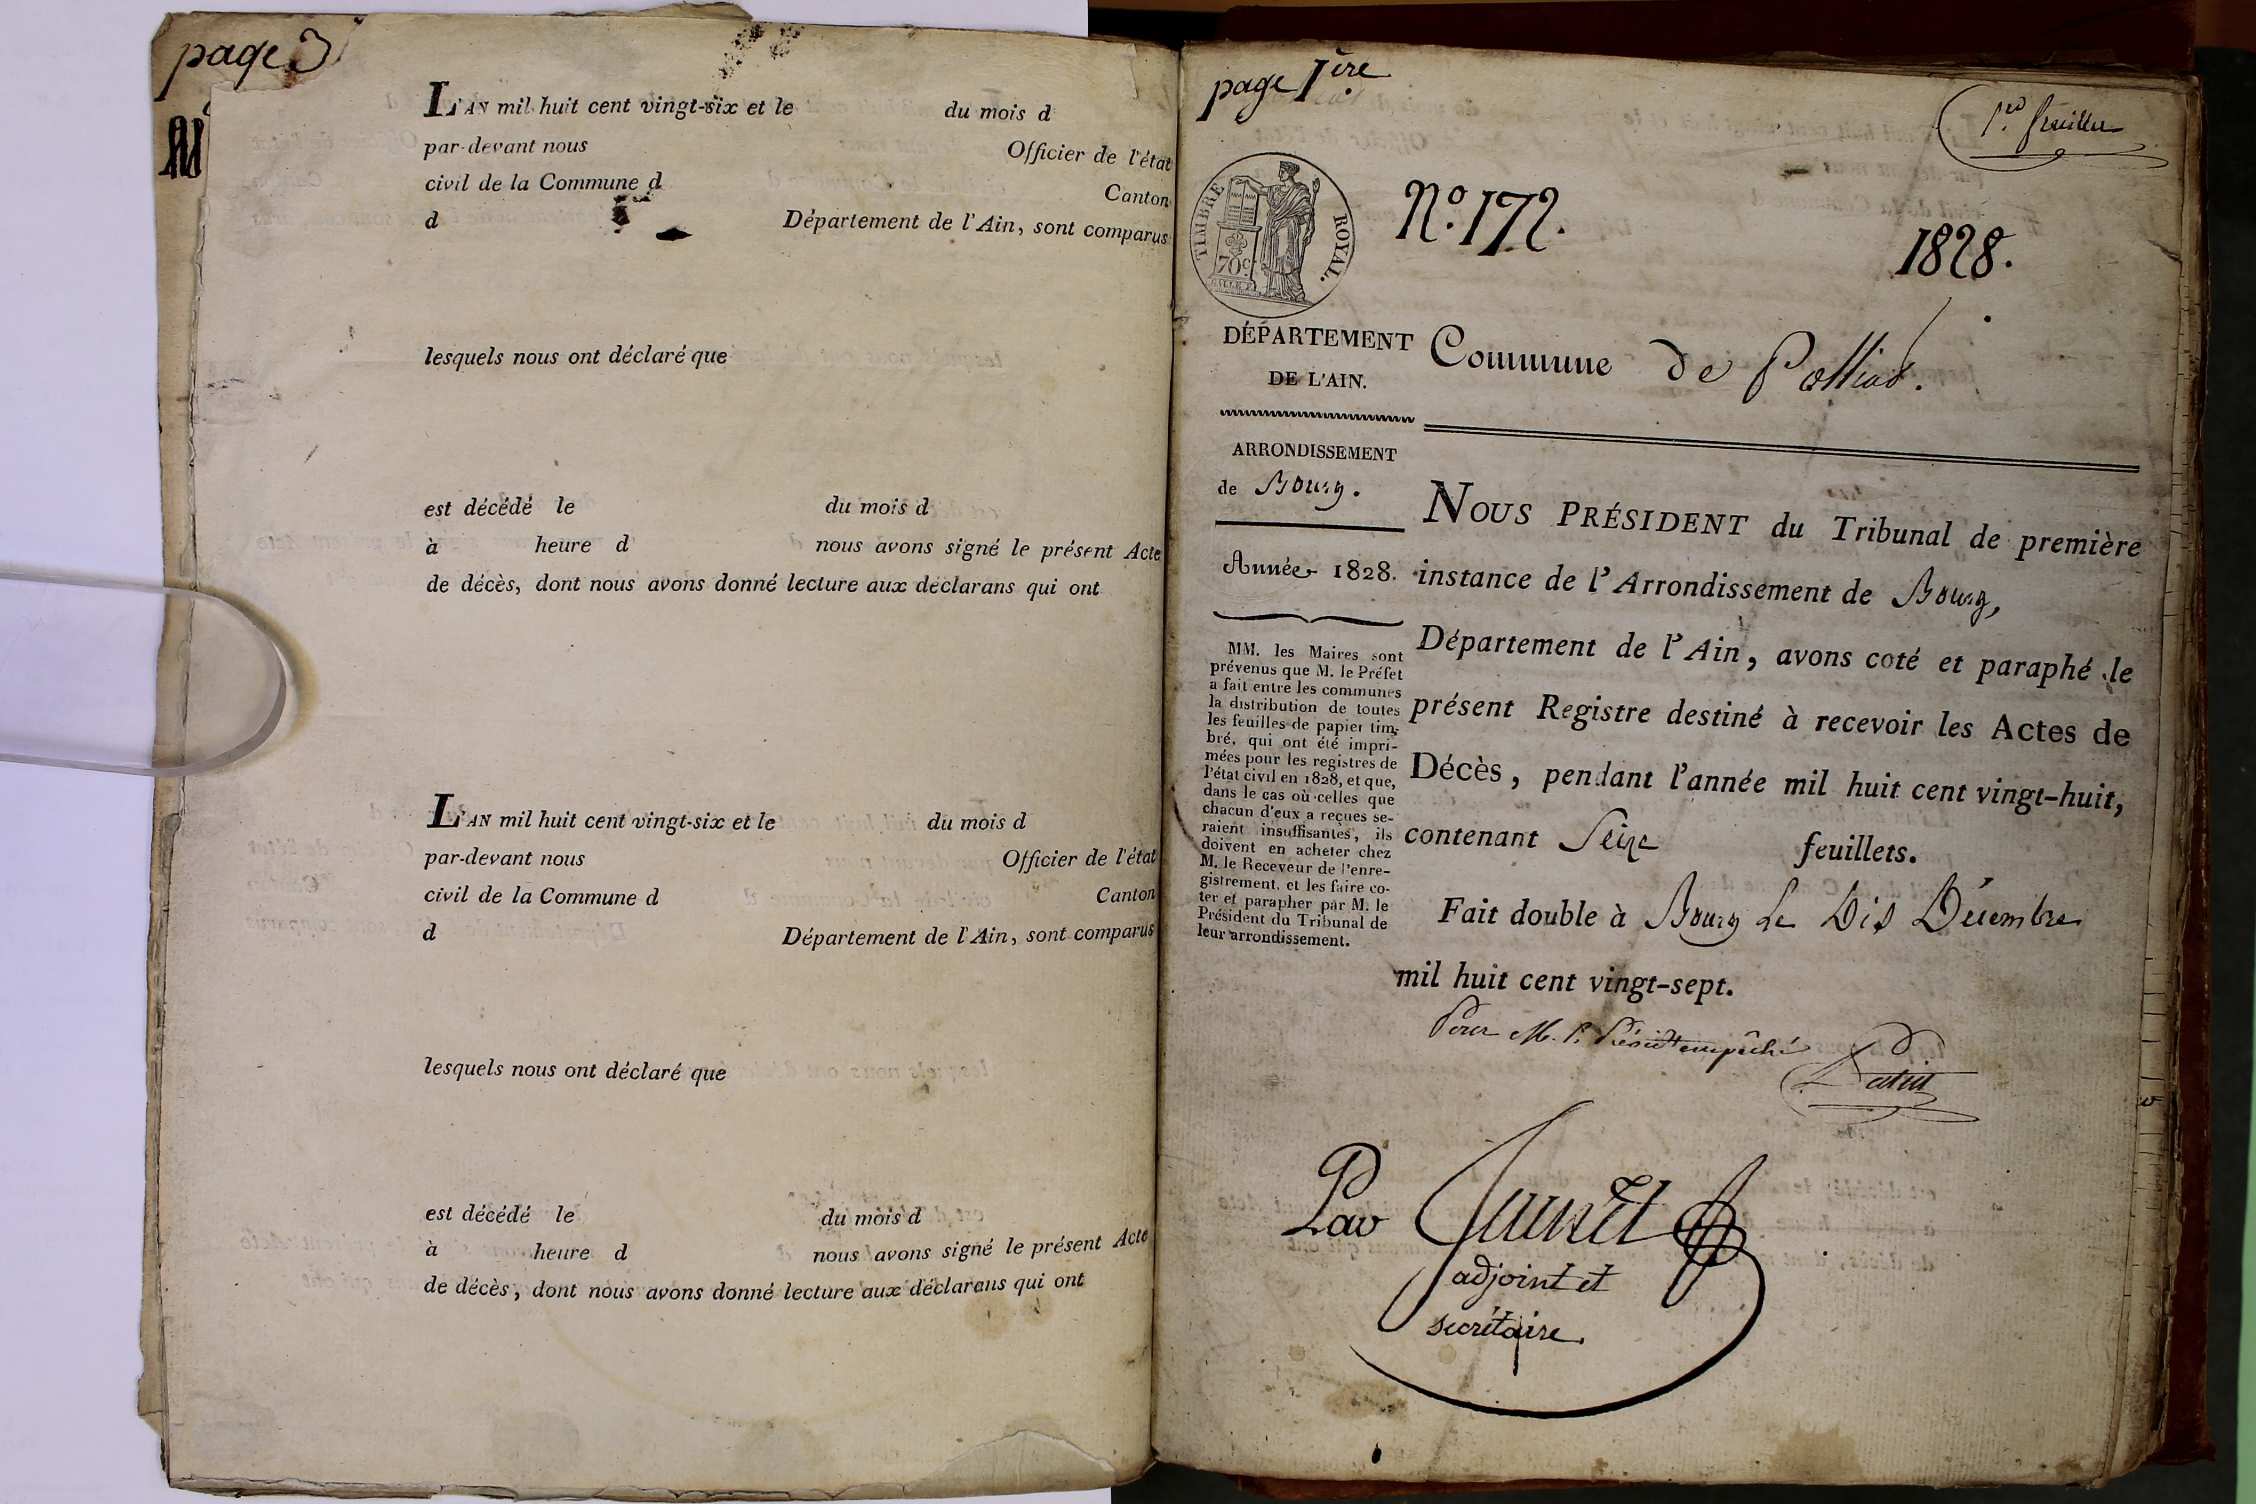 page 3
L'AN mil huit cent vingt-six et le du mois d
par-devant nous Officier de l'état
civil de la Commune d Canton
d Département de l'Ain, sont comparus
lesquels nous ont déclaré que
est décédé le du mois d
à heure d nous avons signé le présent Acte
de décès, dont nous avons donné lecture aux déclarans qui ont
L'AN mil huit cent vingt-six et le du mois d
par-devant nous Officier de l'état
civil de la Commune d Canton
d Département de l'Ain, sont comparus
lesquels nous ont déclaré que
est décédé le du mois d
à heure d nous avons signé le présent Acte
de décès, dont nous avons donné lecture aux déclarans qui ont
page 1ère
1er feuillet
TIMBRE ROYAL.
70c
N.o 172.
1828.
DÉPARTEMENT
DE L'AIN.
Commune de Polliat.
ARRONDISSEMENT
de Bourg.
Année 1828.
MM. les Maires sont
prévenus que M. le Préfet
a fait entre les communes
la distribution de toutes
les feuilles de papier tim-
bré, qui ont été impri-
mées pour les registres de
l'état civil en 1828, et que,
dans le cas où celles que
chacun d'eux a reçues se-
raient insuffisantes, ils
doivent en acheter chez
M. le Receveur de l'enre-
gistrement, et les faire co-
ter et parapher par M. le
Président du Tribunal de
leur arrondissement.
NOUS PRÉSIDENT du Tribunal de première
instance de l'Arrondissement de Bourg,
Département de l'Ain, avons coté et paraphé le
présent Registre destiné à recevoir les Actes de
Décès, pendant l'année mil huit cent vingt-huit,
contenant Seize feuillets.
Fait double à Bourg Le Dix Décembre
mil huit cent vingt-sept.
Pour M. le Président empêché
Par
adjoint et
secrétaire.